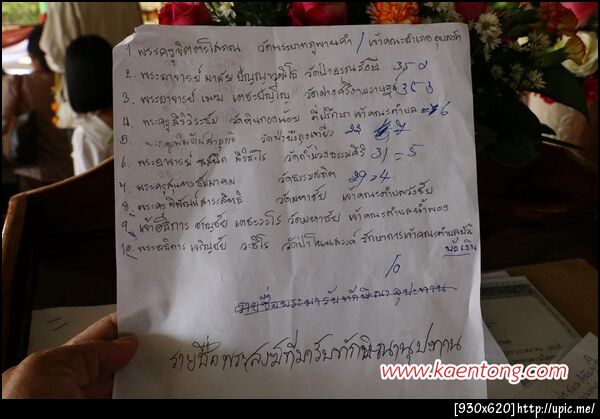 1. พระครูจิตตวิโสภณ วัดพระบาทภูพานคำ / เจ้าคณะอำเภออุบลรัตน์
2. พระอาจารย์ มาลัย ปัญญาวุฑโฒ วัดป่าอรุณรังษี 35 0
3. พระอาจารย์ เตชะปัญโญ วัดป่าศรี 35 0
4. พระครูสิริวิระชัย วัดหินกองน้อย ที่ปรึกษา เจ้าคณะตำบล = 6
5. วัดป่าบึงถูงเหี่ยว 22 7
6. พระอาจารย์ สิริสีโร วัดถ้ำม่วงธรรมศิริ 31 = 5
7. พระครูสุนทรชัยมาคม วัดธรรมสถิต 29 = 4
8. พระครูพิพัฒน์สาระสิทธิ วัดมหาชัย เจ้าคณะตำบลวังชัย
9. เจ้าอธิการ ชาญชัย เตชะวะโร วัดมหาชัย เจ้าคณะตำบลน้ำพอง
10. พระอธิการ เจริญชัย วัดป่าโนนสวรรค์ รักษาการเจ้าคณะตำบล
10
รายชื่อพระมารับทักษิณานุปะทาน
รายชื่อ พระสงฆ์ที่มารับทักษิณานุปทาน
www.kaentong.com
[930x620] http://upic.me/